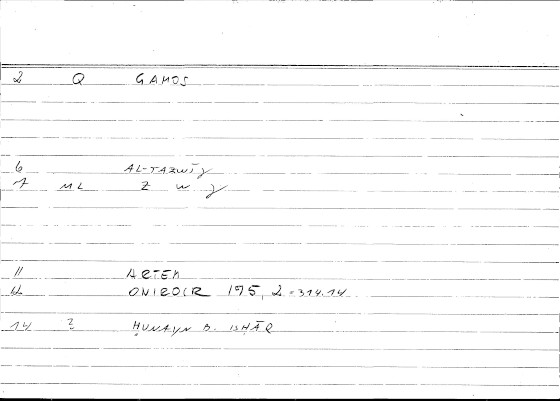 2 Q GAMOS
6 AL-TAZWĪǧ
7 ML Z W ǧ
11 ARTEM
12 ONIROCR 175, 2 = 314.14
14 ? ḤUNAYN B. ISḤĀQ